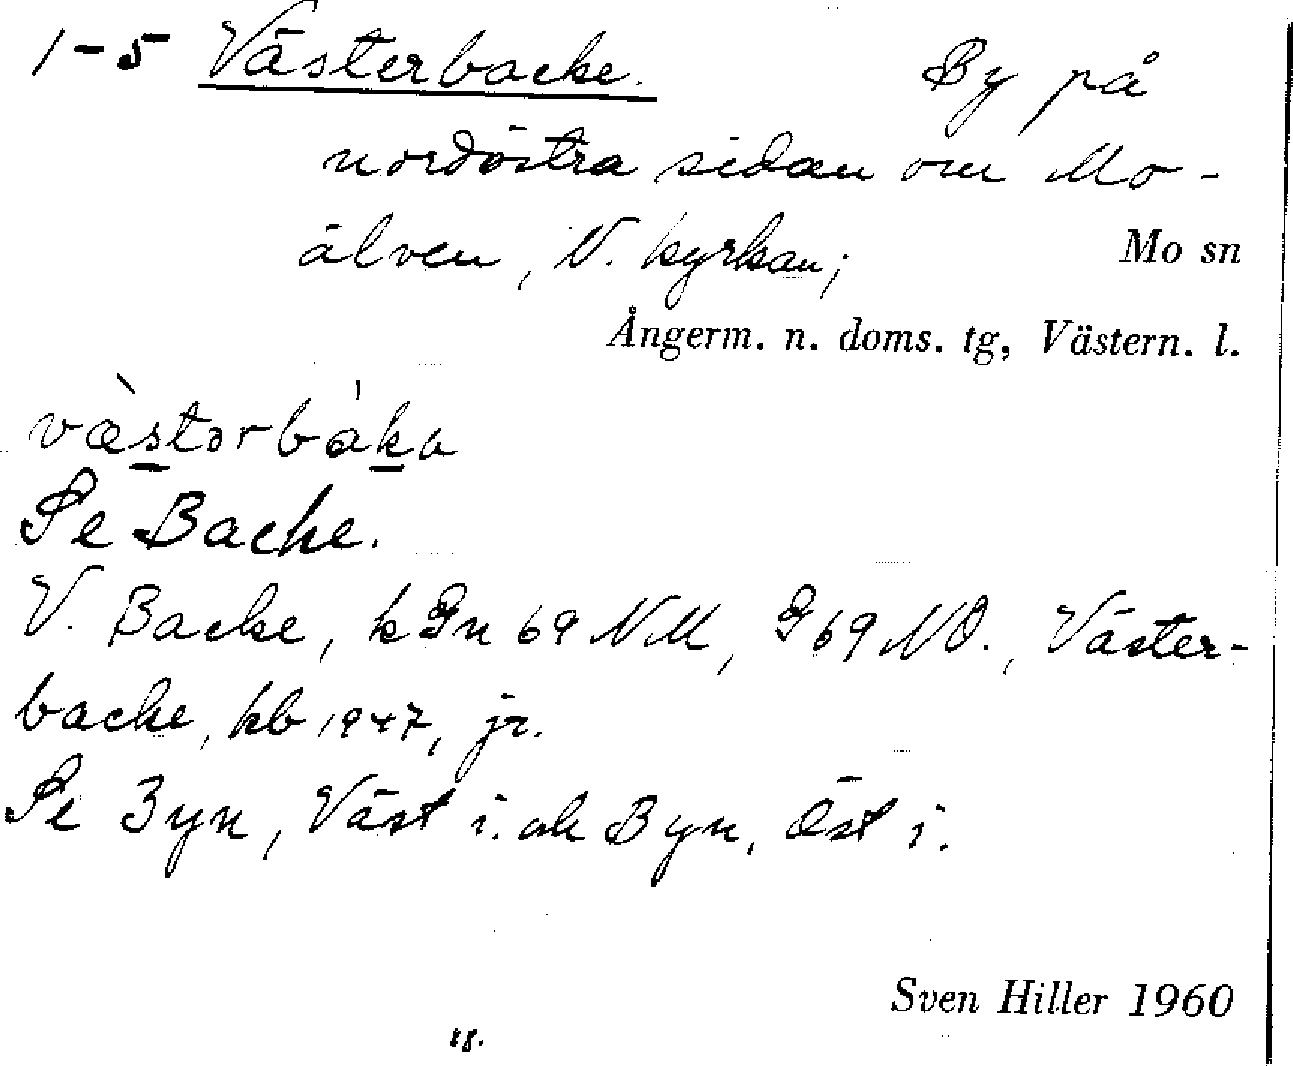 1-5 Västerbacke. By på
nordöstra sidan om Mo-
älven, V. kyrkan;
Mo sn
Ångerm. n. doms. tg, Västern. l.
væ̀stərbáka
Se Backe.
V. Backe, k Gn 69 NM, G 69 NO., Väster-
backe, kb 1947, jr.
Se Byn, Väst i. ok Byn, Öst i.
Sven Hiller 1960